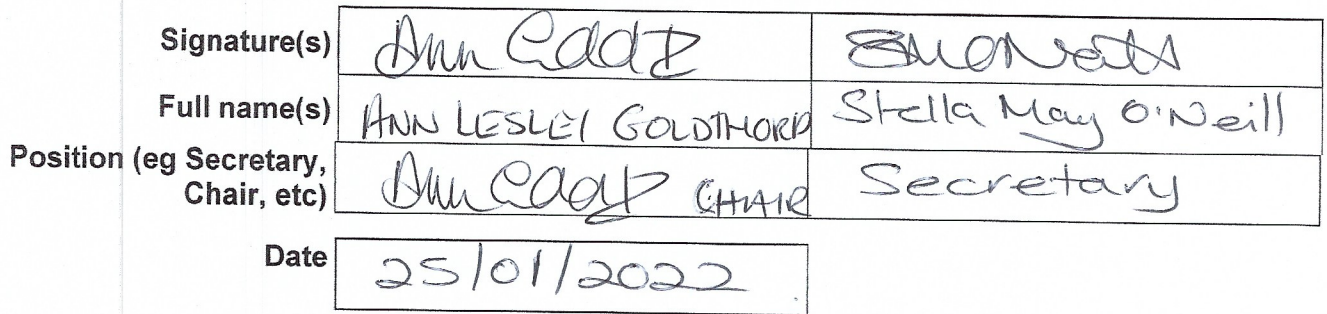 Signature(s)
Full name(s) ANN LESLEY GOLDTHORP Stella May O'Neill
Position (eg Secretary,
Chair, etc) CHAIR Secretary
Date 25/01/2022